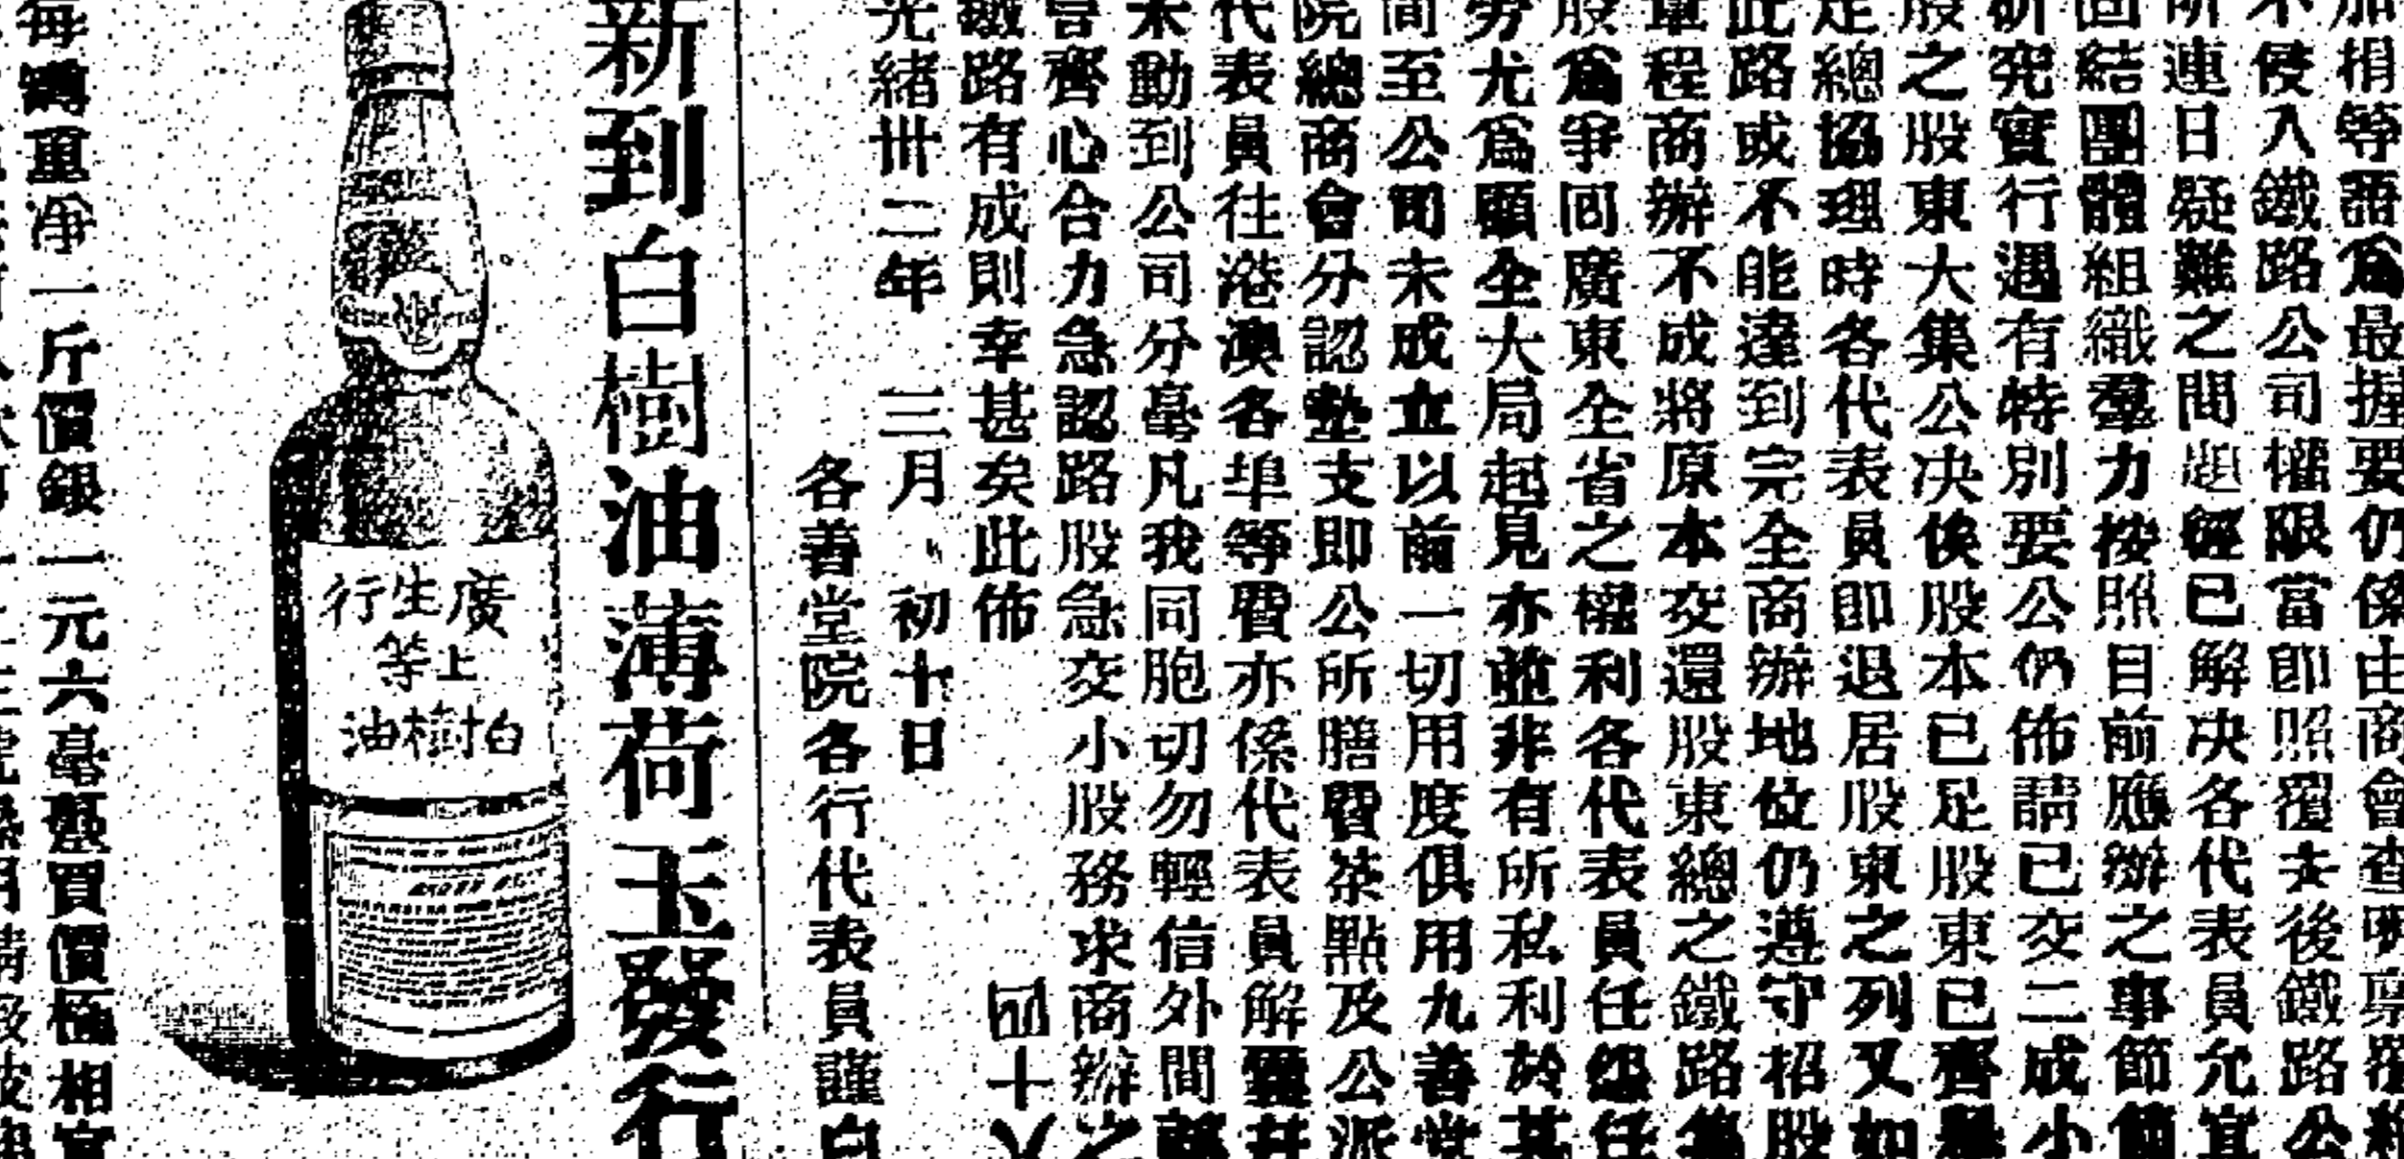 加捐等語爲最握要仍係由商會查明稟覆
不侵入鐵路公司權限當卽照覆去後鐵路公
所連日疑難之問題經已解决各代表員允宜
固結團體組織羣力按照目前應辦之事節
研究實行遇有特別要公仍佈請已交二成小
股之股東大集公决俟股本已足股東已齊舉
足總協理時各代表員卽退居股東之列又如
此路或不能達到完全商辦地位仍遵守招股
章程商辦不成將原本交還股東總之鐵路
股爲爭回廣東全省之權利各代表員任怨任
勞尤爲顧全大局起見亦並非有所私利於其
間至公司未成立以前一切用度俱用九善堂
院總商會分認墊支即公所膳費茶點及公派
代表員往港澳各埠等費亦係代表員解囊並
未動到公司分毫凡我同胞切勿輕信外間
各宜齊心合力急認路股急交小股務求商辦之
鐵路有成則幸甚矣此佈
光緒卅二年 三月 初十日
各善堂院各行代表員謹白
新到白樹油薄荷玉發行
廣生行
上等
白樹油
每罇重淨一斤價銀一元六毫臺買價極相宜